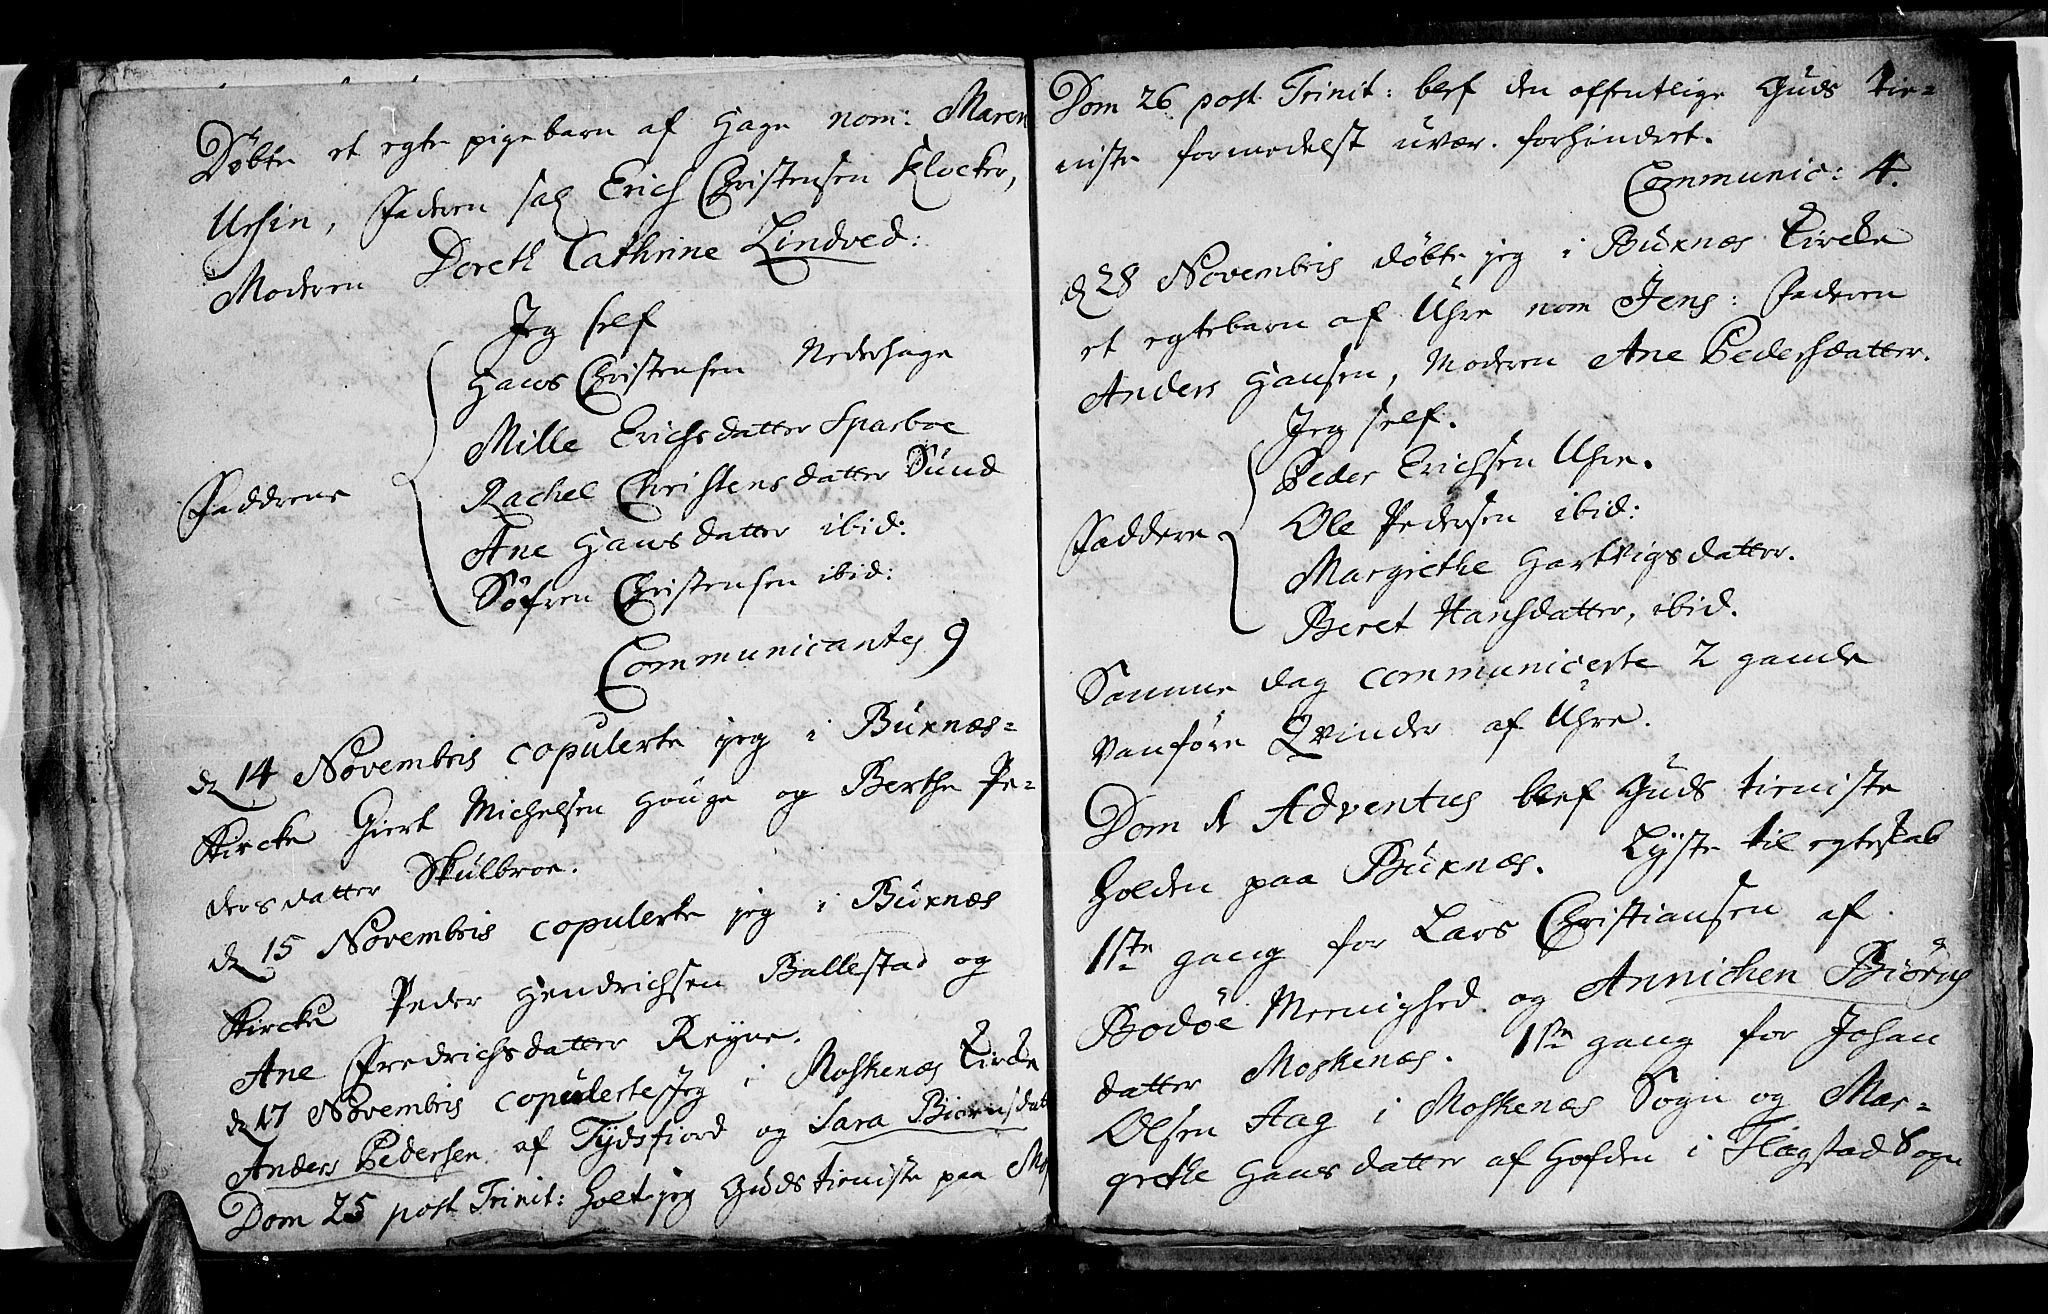 Døbte et egte pigebarn af Hage nom: Maren
Ursin, Faderen sal Erich Christensen Klocker,
Moderen Doreth Cathrine Lindved:
Jeg self
Hans Christensen Nederhage
Mille Erichsdatter Sparboe
Rachel Christensdatter Sund
Fadderne
Ane Hansdatter ibid:
Søfren Christensen ibid:
Communicantes 9
d 14 Novembris copulerte jeg i Buxnæs-
Kircke Giert Michelsen Houge og Berthe Pe-
dersdatter Skulbroe.
d 15 Novembris copulerte jeg i Buxnæs
Kircke Peder Hendrichsen Ballestad og
Ane Fredrichsdatter Reyne.
d 17 Novembris copulerte Jeg i Moskenæs Kircke
Anders Pedersen af Tydsfiord og Sara Biørnsdat
Dom 25 post Trinit: holt jeg Guds tieniste paa
Dom 26 post Trinit: blef den offentlige Guds tie-
niste formedelst uvær. forhindret.
Communic: 4.
d 28 Novembris døbte jeg i Buxnæs Kircke
et egtebarn af Uhre nom Jens: Faderen
Anders Hansen, Moderen Ane Pedersdatter.
Jeg self.
Peder Erichsen Uhre.
Faddere Ole Pedersen ibid:
Margrethe Hartvigsdatter.
Beret Hansdatter, ibid.
Samme dag communicerte 2 gamle
vanføre Qvinder af Uhre.
Dom 1 Adventus blef Guds tieniste
holden paa Buxnæs. Lyste til egteskab
1ste gang for Lars Christiansen af
Bodøe Meenighed og Annichen Biørns
datter Moskenæs. 1ste gang for Johan
Olsen Aag i Moskenæs Sogn og Mar-
grethe Hansdatter af Hofden i Flagstad Sogn